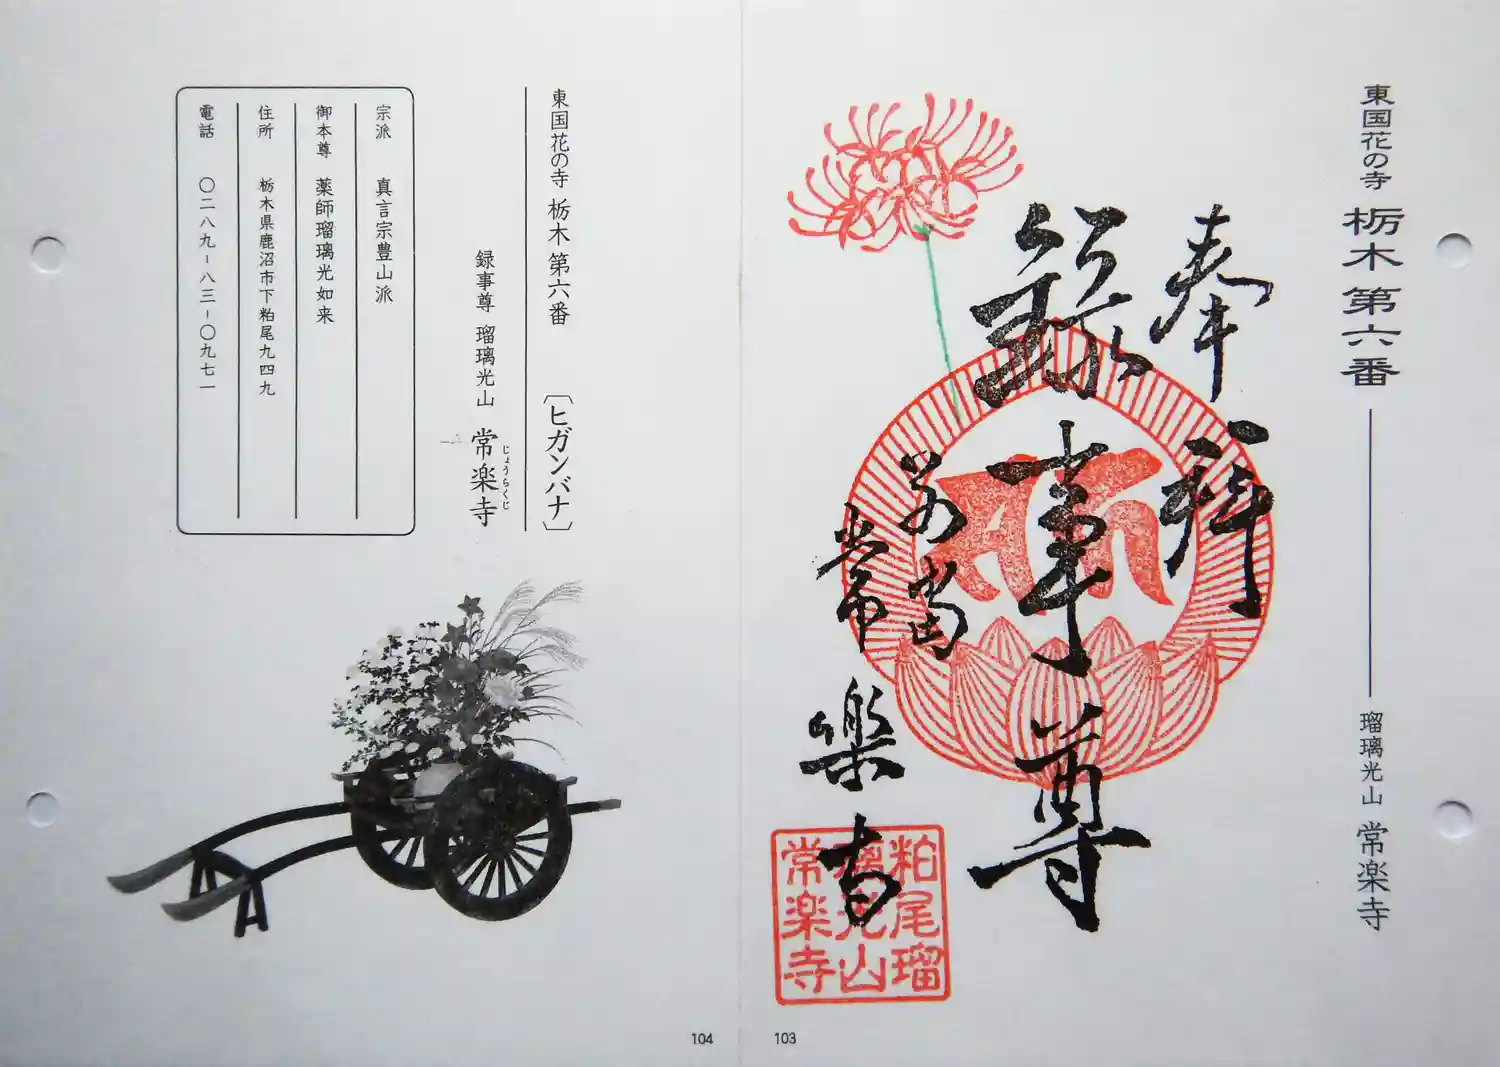 東国花の寺 栃木第六番 瑠璃光山 常楽寺
奉拝
録事尊
別当
常楽寺
粕尾瑠
璃光山
常楽寺
103
東国花の寺 栃木第六番 〔ヒガンバナ〕
録事尊 瑠璃光山 常楽寺
じょうらくじ
宗派 真言宗豊山派
御本尊 薬師瑠璃光如来
住所 栃木県鹿沼市下粕尾九四九
電話 〇二八九-八三-〇九七一
104